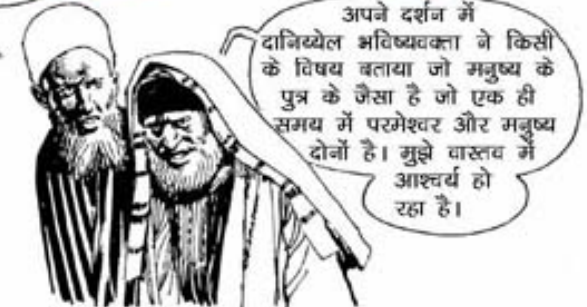 अपने दर्शन में
दानिय्येल भविष्यवक्ता ने किसी
के विषय बताया जो मनुष्य के
पुत्र के जैसा है जो एक ही
समय में परमेश्वर और मनुष्य
दोनों है। मुझे वास्तव में
आश्चर्य हो
रहा है।